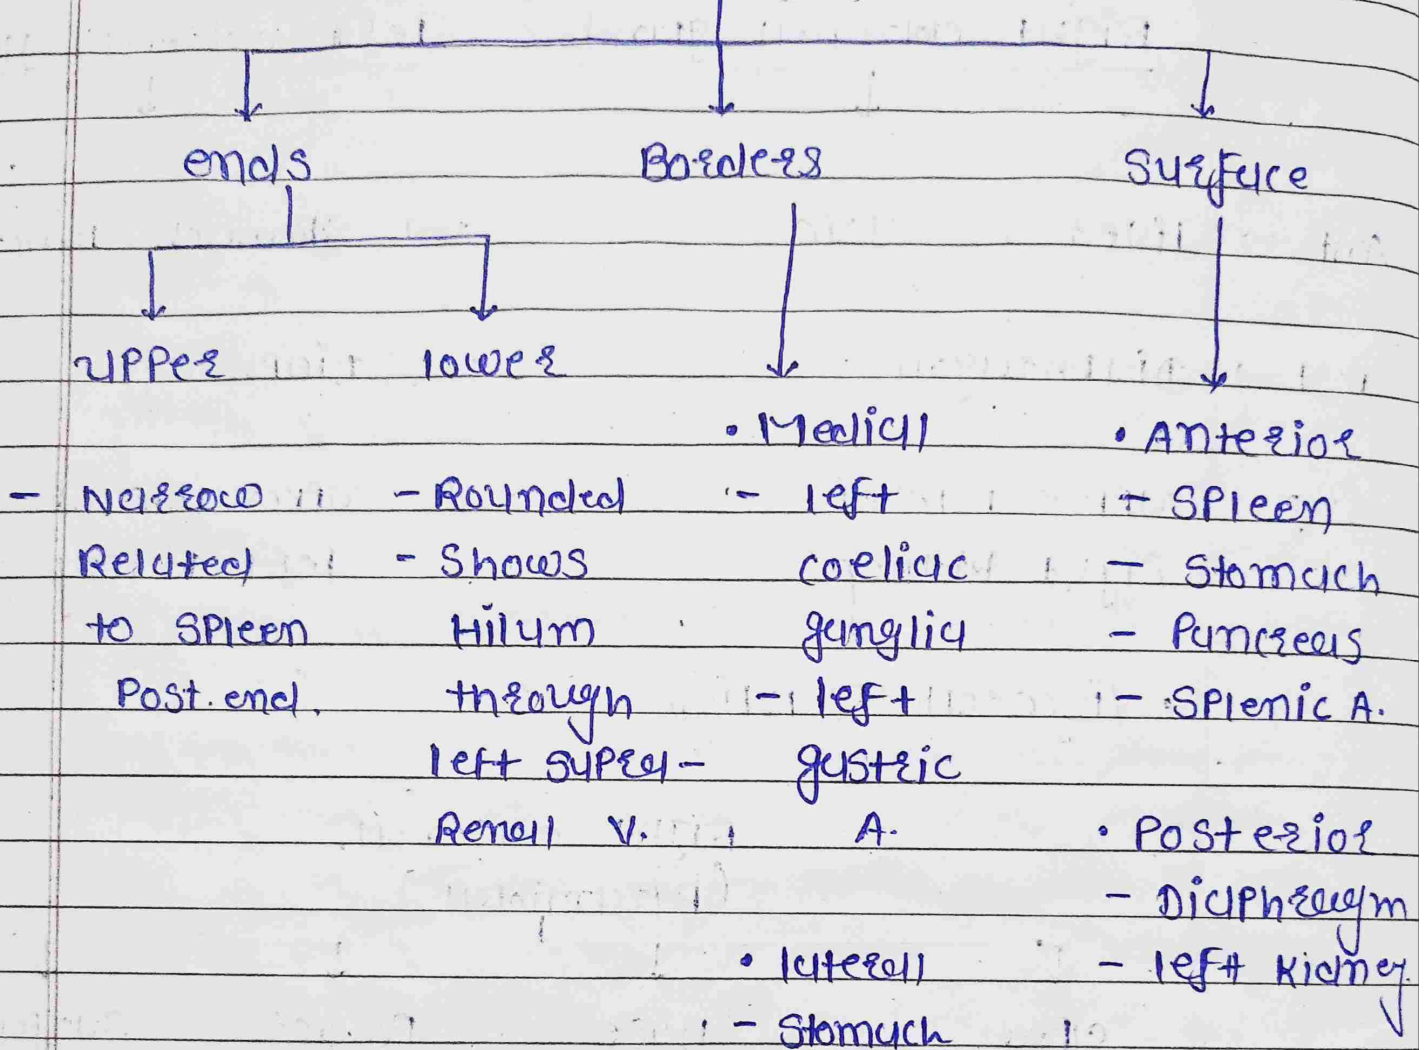 ends
Borders
Surface
upper
lower
- Narrow
Related
to spleen
Post. end.
- Rounded
- Shows
Hilum
through
left supra-
Renal V.
• Medial
- left
coeliac
ganglia
- left
gastric
A.
• lateral
- Stomach
• Anterior
- Spleen
- Stomach
- Pancreas
- Splenic A.
• Posterior
- Diaphragm
- left Kidney